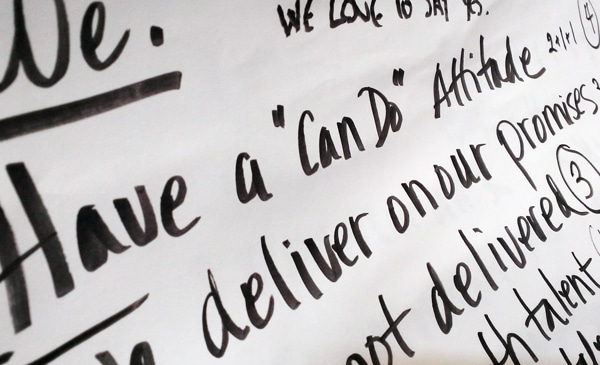 We.
WE LOVE TO SAY YES.
Have a "Can Do" Attitude 2+1+1 (4)
deliver on our promises
not delivered (3)
talent